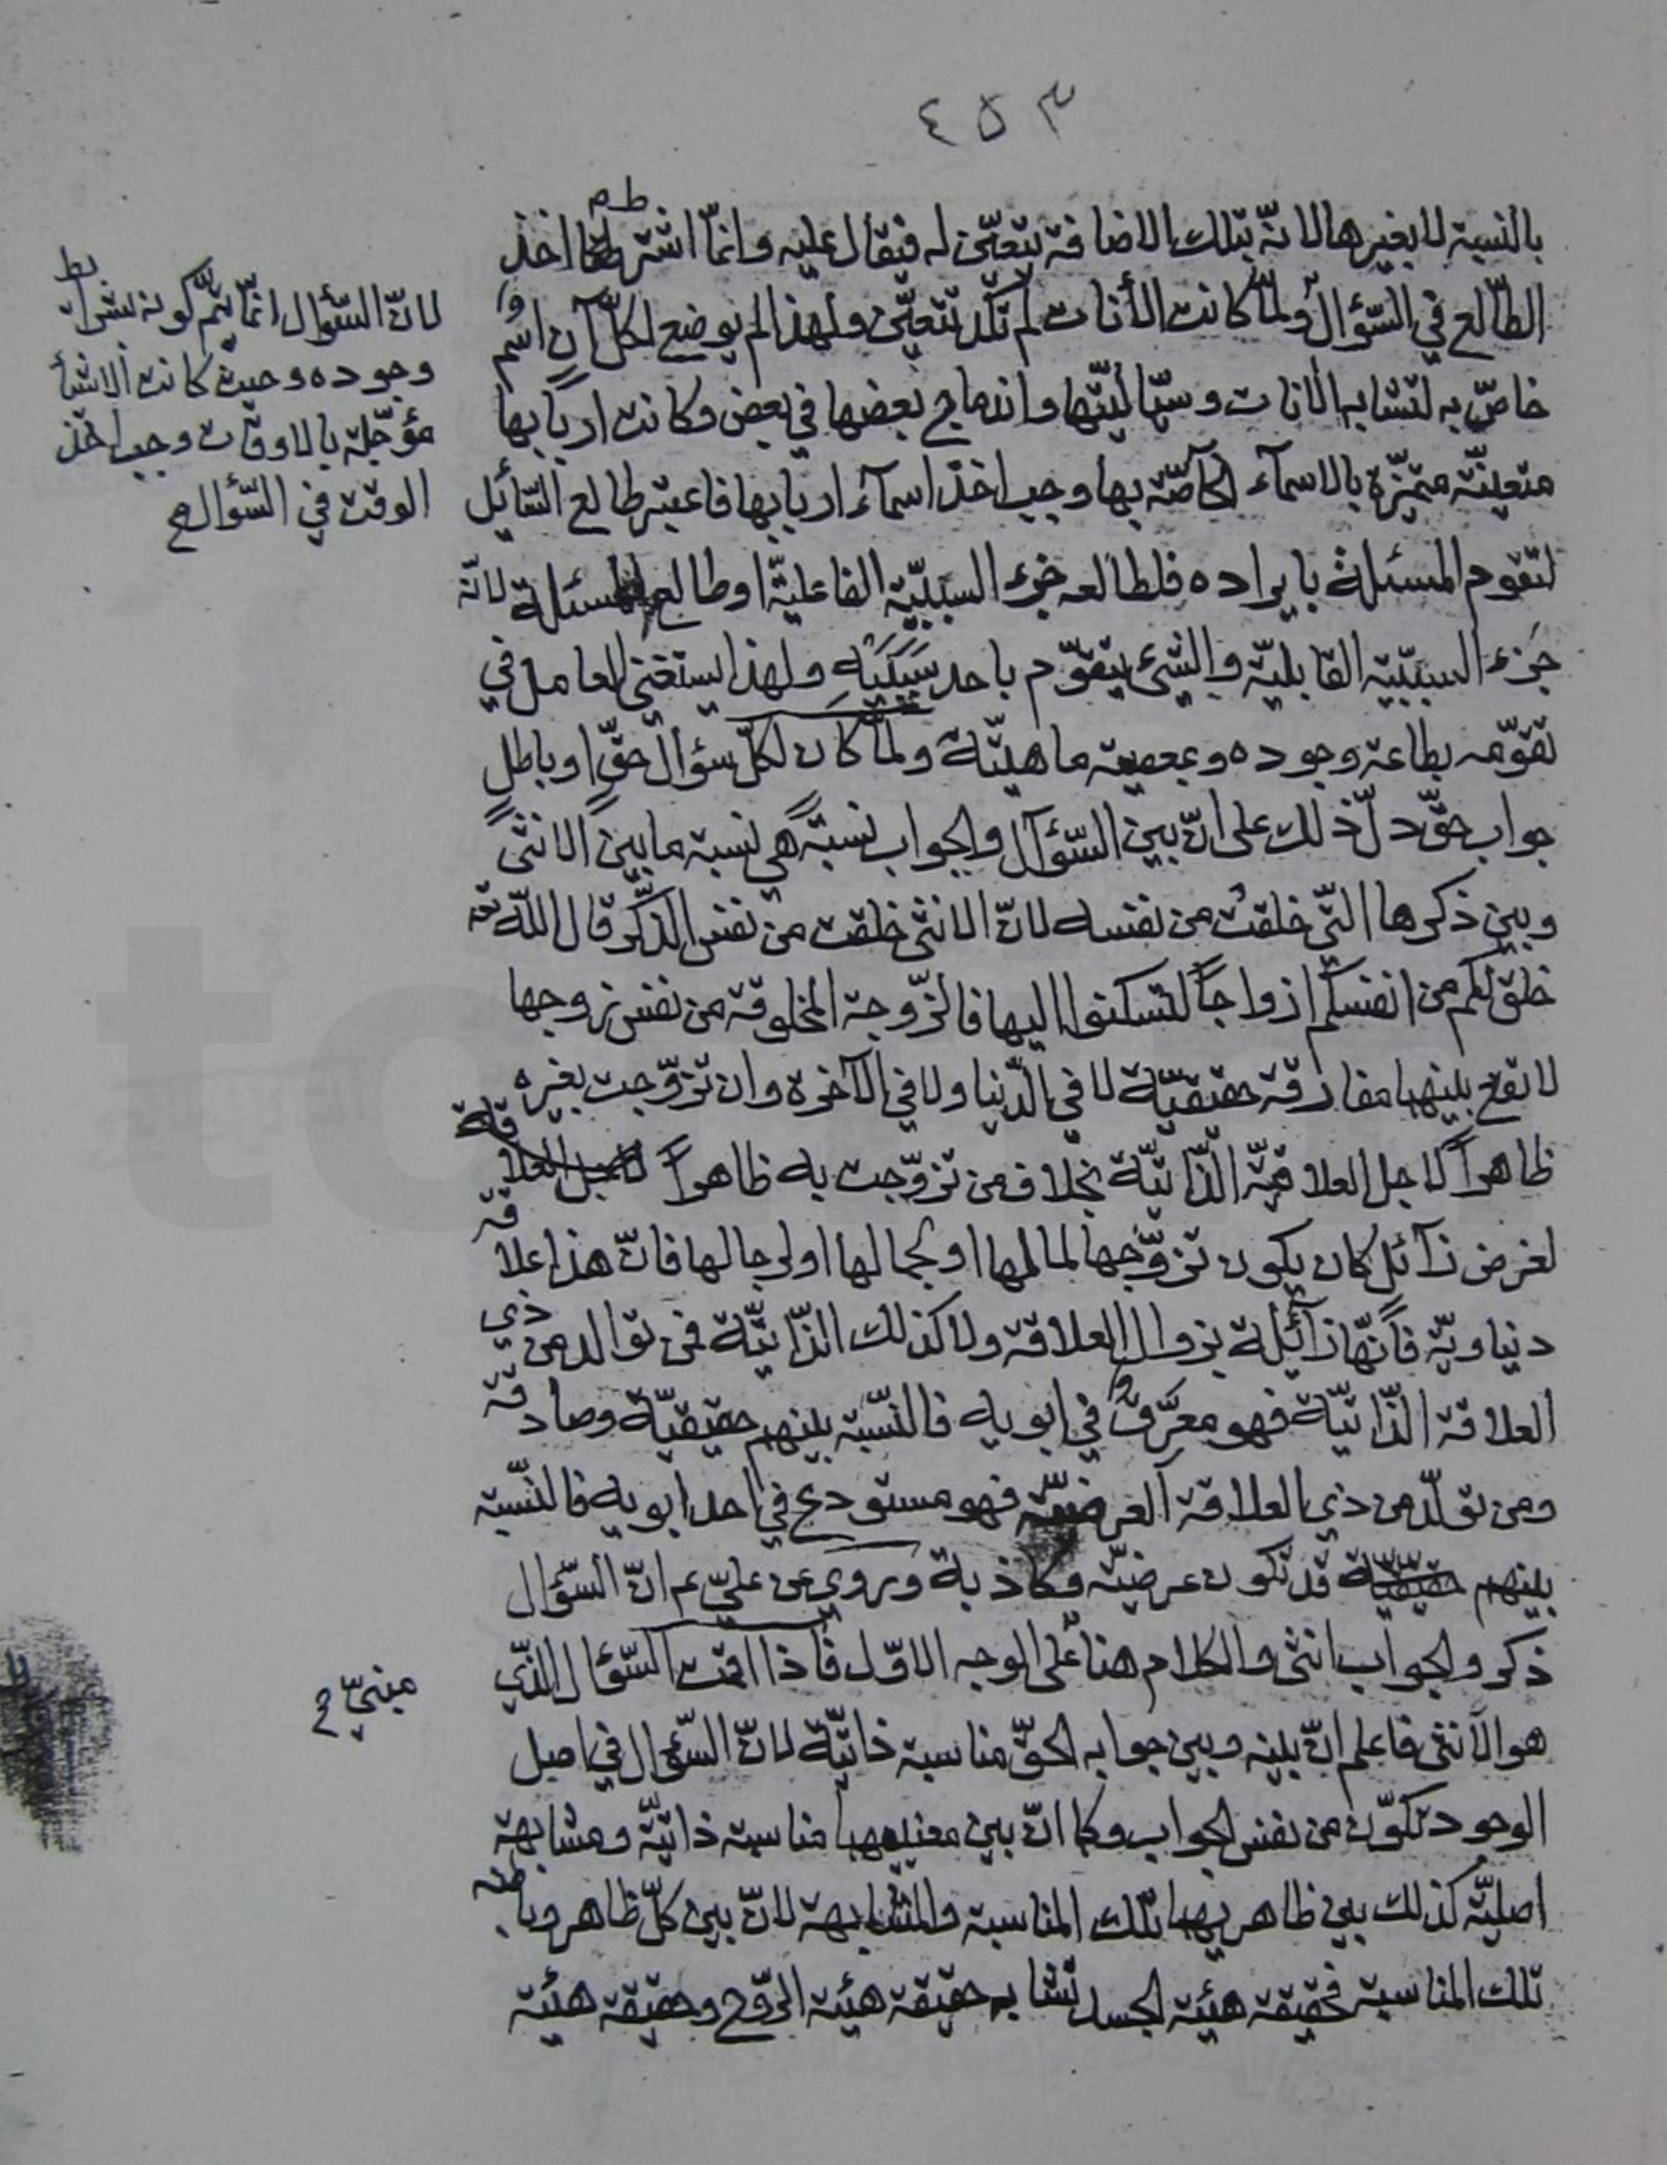 ٤٥٣
بالنسبة لا بغيرها لانّه بتلك الاضافة يتعيّن له فيقال عليه وانّما اشترط اخذ
الطّالع في السّؤال ولمّا كانت الأنات لم تكد تتعيّن ولهذا لم يوضع لكلّ آنٍ اسم
خاصّ به لتشابه الانات وسيّاليّتها واندماج بعضها في بعض وكانت اربابها
متعيّنة متميّزة بالاسمآء الخاصّة بها وجب اخذ اسمآء اربابها فاعتبر طالع السّائل
لتقوم المسئلة بايراده فلطالعه جزء السببيّة الفاعليّة او طالع المسئلة لانّه
جزء السببيّة القابليّة والشيء يتقوّم باحد سببيه ولهذا يستغني العامل في
تقوّمه بطاعة وجوده وبمعصية ماهيّته ولمّا كان لكلّ سؤال حقّ او باطل
جواب حقّ دلّ ذلك على انّ بين السّؤال والجواب نسبةً هي نسبة ما بين الانثى
وبين ذكرها الّتي خلقت من نفسه لانّ الانثى خلقت من نفس الذّكر قال اللّه تع
خلق لكم من انفسكم ازواجاً لتسكنوا اليها فالزّوجة المخلوقة من نفس زوجها
لا تقع بينهما مفارقة حقيقيّة لا في الدّنيا ولا في الآخرة وان تزوّجت بغيره
ظاهراً لاجل العلاقة الذّاتيّة بخلاف من تزوّجت به ظاهراً
لغرض زآئل كان يكون تزوّجها لمالها او لجمالها او لرجالها فانّ هذا علاقة
دنياويّة فانّها زآئلة بزوال العلاقة ولا كذلك الذّاتيّة فمن توالد من ذي
العلاقة الذّاتيّة فهو معرّق في ابويه فالنّسبة بينهم حقيقيّة وصادقة
ومن تولّد من ذي العلاقة العرضيّة فهو مستودع في احد ابويه فالنّسبة
بينهم قد تكون عرضيّة وكاذبة وروي عن عليّ عم انّ السّؤال
ذكر والجواب انثى والكلام هنا على الوجه الاوّل فاذا اقمت السّؤال الّذي
هو الانثى فاعلم انّ بينه وبين جوابه الحقّ مناسبة ذاتيّة لانّ السّؤال في اصل
الوجود تكوّن من نفس الجواب وكما انّ بين معنييهما مناسبة ذاتيّة ومشابهة
اصليّة كذلك بين ظاهريهما تلك المناسبة والمشابهة لانّ بين كلّ ظاهر وباطنه
تلك المناسبة فحقيقة هيئة الجسد تشابه حقيقة هيئة الرّوح وحقيقة هيئة
لانّ السّؤال انّما يتمّ كونه بشرايط
وجوده وحيث كانت الاشيآ
مؤجّلة بالاوقات وجب اخذ
الوقت في السّؤال صح
مبنيّ